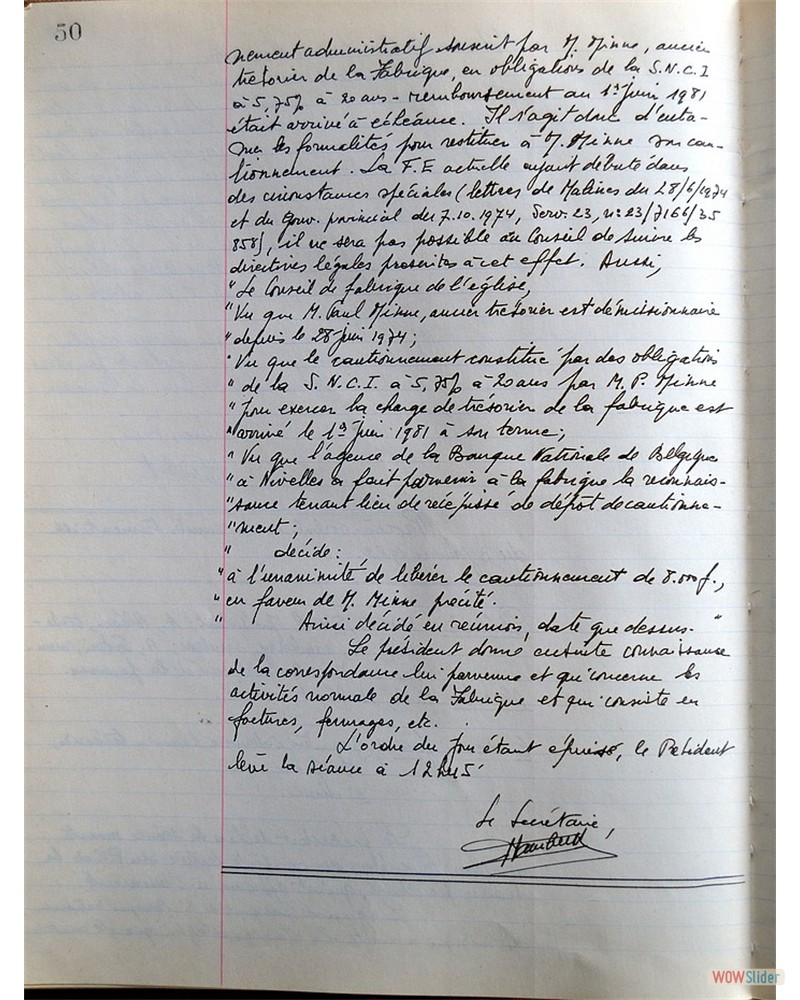 50
nement administratif souscrit par M. Minne, ancien
trésorier de la Fabrique, en obligations de la S.N.C.I
à 5,75% à 20 ans - remboursement au 1er juin 1981
était arrivé à échéance. Il s'agit donc d'enta-
mer les formalités pour restituer à M. Minne son cau-
tionnement. La F.E actuelle ayant débuté dans
des circonstances spéciales (lettres de Malines du 28/6/1974
et du Gouv. provincial du 7.10.1974, Serv. 23, n° 23/7166/35
858), il ne sera pas possible au Conseil de suivre les
directives légales prescrites à cet effet. Aussi,
"Le Conseil de fabrique de l'église,
"Vu que M. Paul Minne, ancien trésorier est démissionnaire
"depuis le 28 juin 1974;
"Vu que le cautionnement constitué par des obligations
"de la S.N.C.I. à 5,75% à 20 ans par M. P. Minne
"pour exercer la charge de trésorier de la fabrique est
"arrivé le 1er juin 1981 à son terme;
"Vu que l'agence de la Banque Nationale de Belgique
"à Nivelles a fait parvenir à la fabrique la reconnais-
"sance tenant lieu de récépissé de dépôt de cautionne-
"ment;
" décide:
"à l'unanimité de libérer le cautionnement de 8.000 f.,
" en faveur de M. Minne précité.
" Ainsi décidé en réunion, date que dessus. "
Le président donne ensuite connaissance
de la correspondance lui parvenue et qui concerne les
activités normale de la Fabrique et qui consiste en
factures, fermages, etc.
L'ordre du jour étant épuisé, le Président
lève la séance à 12h45
Le Secrétaire,
WOWSlider